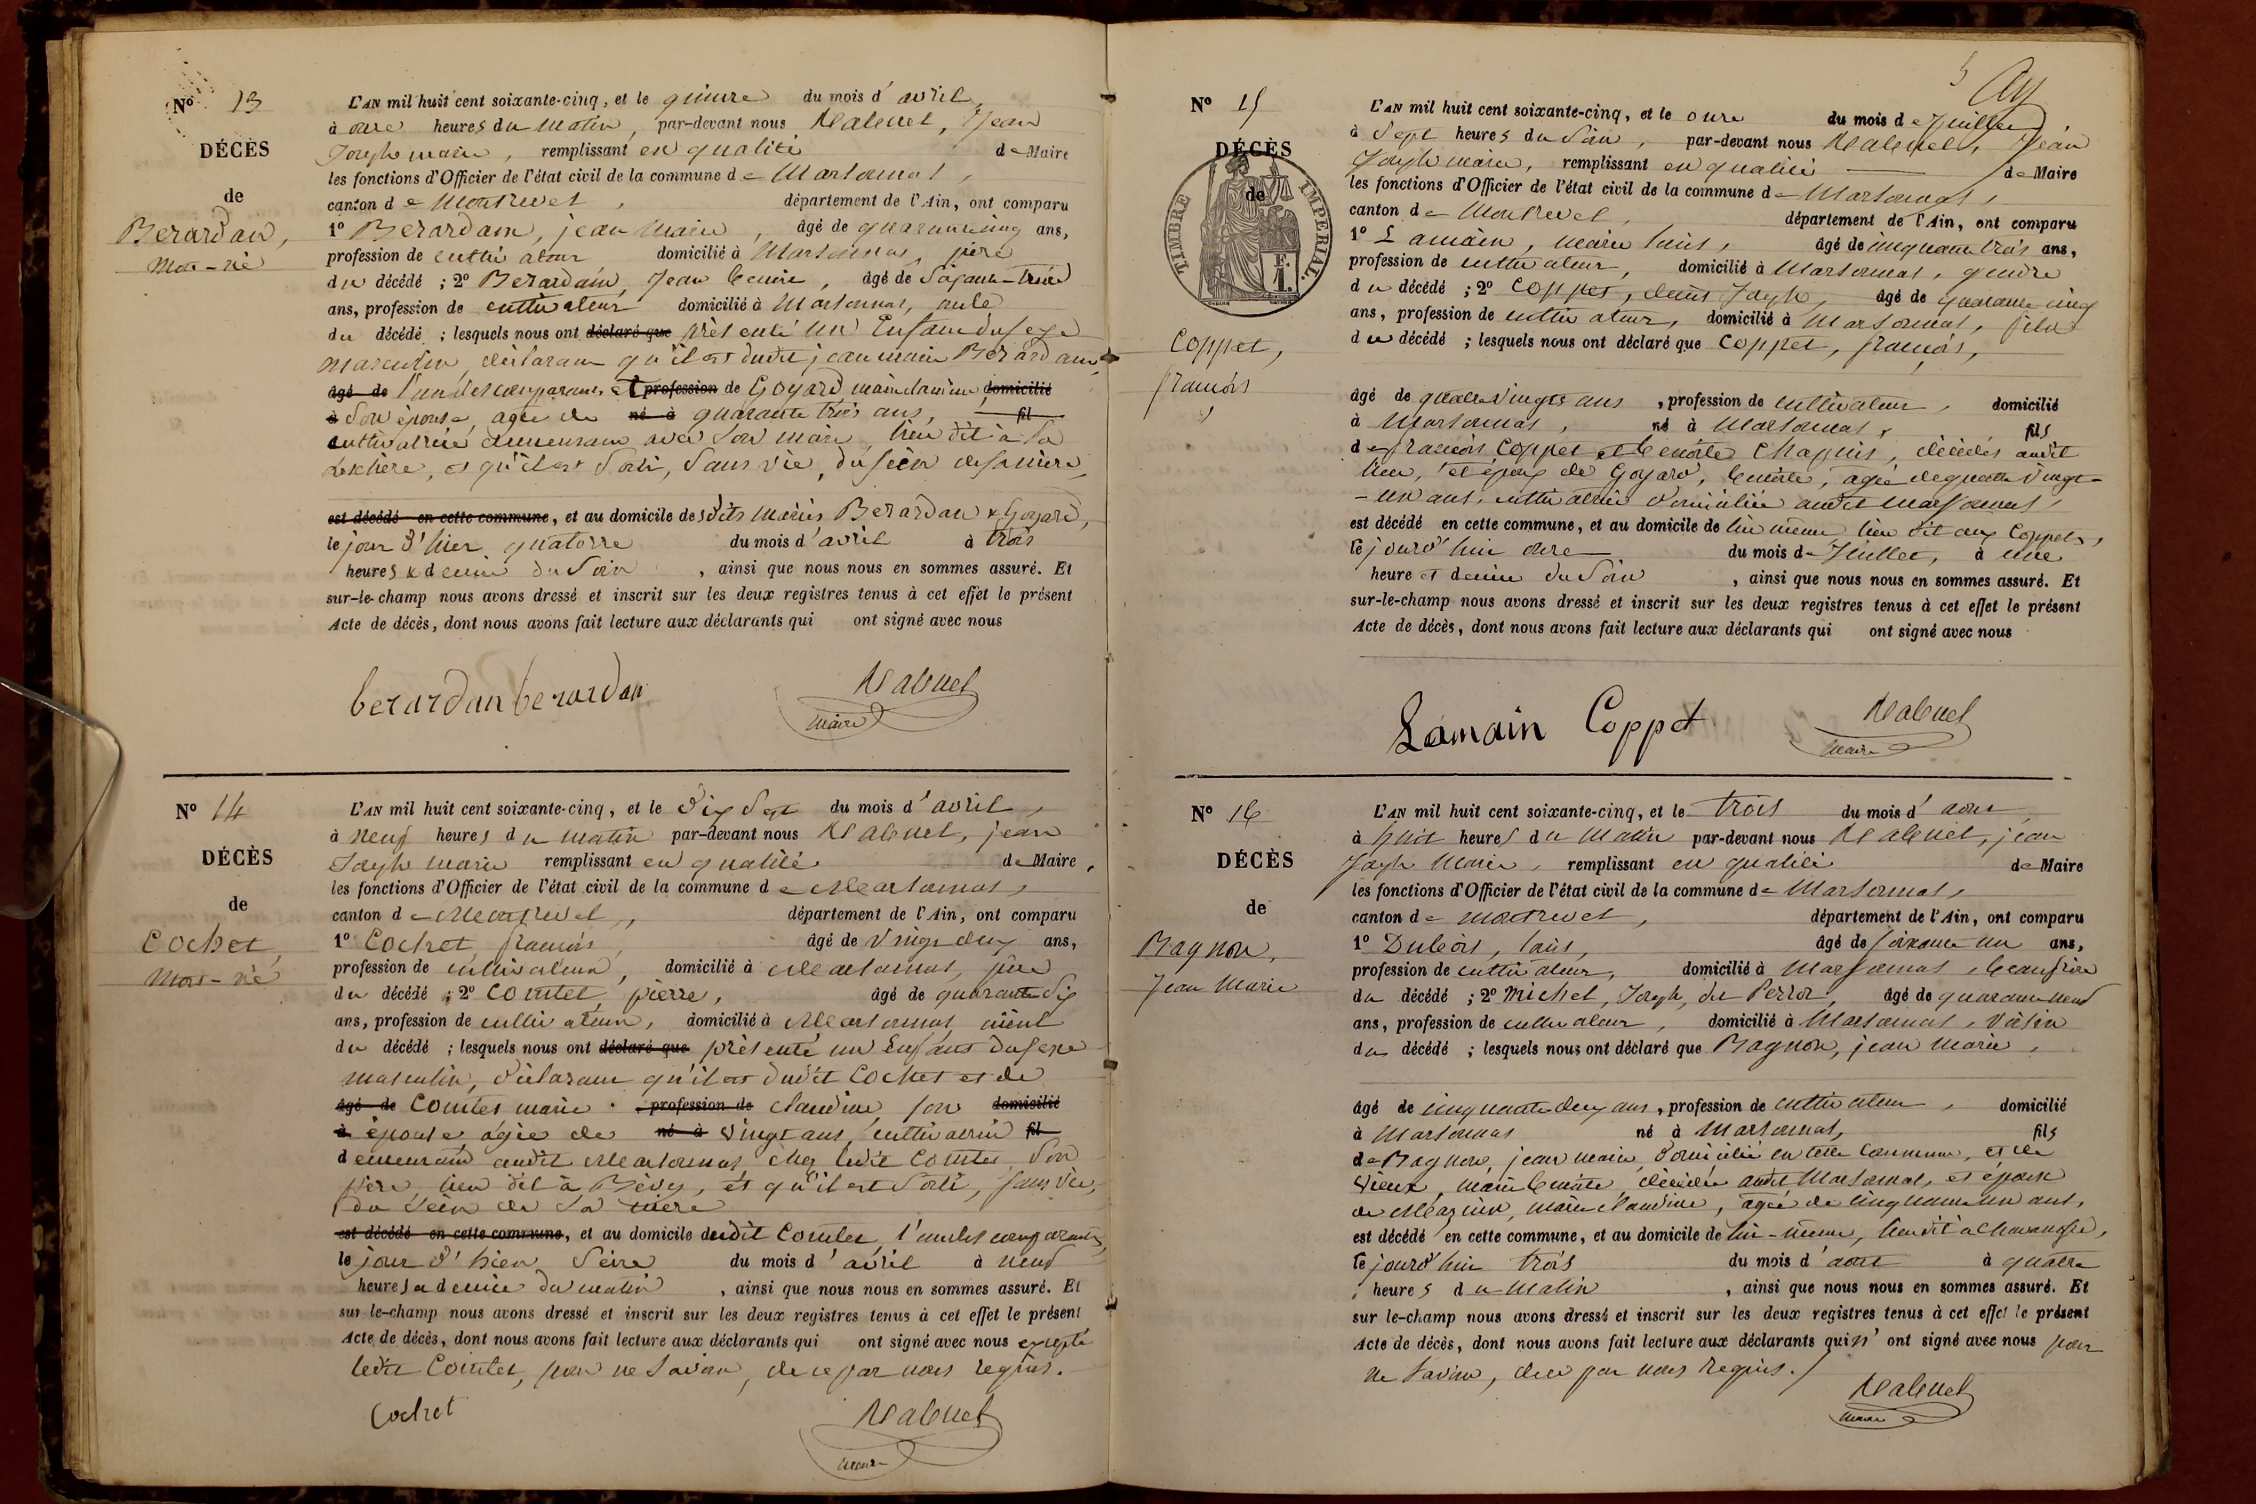 N° 13
DÉCÈS
de
Berardan,
Mort-né
L'AN mil huit cent soixante-cinq, et le quinze du mois d'avril,
à onze heures du matin, par-devant nous Jean
Joseph marie, remplissant en qualité de Maire
les fonctions d'Officier de l'état civil de la commune de Marsonnas,
canton de Montrevel, département de l'Ain, ont comparu
1° Berardan, jean marie, âgé de quarante cinq ans,
profession de cultivateur domicilié à Marsonnas, père
du décédé ; 2° Berardan, Jean âgé de soixante-trois
ans, profession de cultivateur domicilié à Marsonnas, oncle
du décédé ; lesquels nous ont déclaré que présenté un Enfant du sexe
masculin, déclarant qu'il est dudit jean marie Berardan,
âgé de l'un des comparans, et profession de Goyard, marie domicilié
à son épouse, agée de né à quarante trois ans, fil
cultivatrice demeurant avec son mari, lieu dit à la
et qu'il est sorti, sans vie, du sein de sa mère,
est décédé en cette commune, et au domicile desdits mariés Berardan & Goyard,
le jour d'hier quatorze du mois d'avril à trois
heures & demie du soir, ainsi que nous nous en sommes assuré. Et
sur-le-champ nous avons dressé et inscrit sur les deux registres tenus à cet effet le présent
Acte de décès, dont nous avons fait lecture aux déclarants qui ont signé avec nous
berardan berardan
maire
N° 14
DÉCÈS
de
Cochet,
Mort-né
L'AN mil huit cent soixante-cinq, et le dix sept du mois d'avril,
à neuf heures du matin par-devant nous jean
Joseph marie remplissant en qualité de Maire,
les fonctions d'Officier de l'état civil de la commune de Marsonnas,
canton de Montrevel, département de l'Ain, ont comparu
1° Cochet, françois, âgé de vingt deux ans,
profession de cultivateur, domicilié à Marsonnas, père
du décédé ; 2° Comtet, pierre, âgé de quarante six
ans, profession de cultivateur, domicilié à Marsonnas, aïeul
du décédé ; lesquels nous ont déclaré que présenté un enfant du sexe
masculin, déclarant qu'il est dudit Cochet et de
âgé de Comtet marie profession de claudine son domicilié
à épouse, agée de né à vingt ans, cultivatrice fil
demeurant audit Marsonnas, chez ledit Comtet, son
père, lieu dit à et qu'il est sorti, sans vie,
du sein de sa mère
est décédé en cette commune, et au domicile dudit Comtet, l'un des comparants,
le jour d'hier seize du mois d'avril à neuf
heures & demie du matin, ainsi que nous nous en sommes assuré. Et
sur le-champ nous avons dressé et inscrit sur les deux registres tenus à cet effet le présent
Acte de décès, dont nous avons fait lecture aux déclarants qui ont signé avec nous excepté
ledit Comtet, pour ne savoir, de ce par nous requis.
Cochet
maire
5
N° 15
DÉCÈS
de
TIMBRE IMPERIAL
F.
1.
Coppet,
françois
L'AN mil huit cent soixante-cinq, et le onze du mois de Juillet
à sept heures du soir, par-devant nous Jean
Joseph marie, remplissant en qualité de Maire
les fonctions d'Officier de l'état civil de la commune de Marsonnas,
canton de Montrevel, département de l'Ain, ont comparu
1° Lamain, marie louis, âgé de cinquante trois ans,
profession de cultivateur, domicilié à Marsonnas, gendre
du décédé ; 2° Coppet, denis Joseph, âgé de quarante cinq
ans, profession de cultivateur, domicilié à Marsonnas, fils
du décédé ; lesquels nous ont déclaré que Coppet, françois,
âgé de quatre vingts ans, profession de cultivateur, domicilié
à Marsonnas, né à Marsonnas, fils
de françois Coppet et benoite Chapuis, décédés audit
lieu, et époux de Goyard, benoite, agée de quatre vingt-
-un ans, cultivatrice domiciliée audit Marsonnas,
est décédé en cette commune, et au domicile de lui même lieu dit aux Coppets,
le jourd'hui onze du mois de Juillet, à une
heure et demie du soir, ainsi que nous nous en sommes assuré. Et
sur-le-champ nous avons dressé et inscrit sur les deux registres tenus à cet effet le présent
Acte de décès, dont nous avons fait lecture aux déclarants qui ont signé avec nous
Lamain Coppet
maire
N° 16
DÉCÈS
de
Bagnon,
Jean Marie
L'AN mil huit cent soixante-cinq, et le trois du mois d'aout,
à huit heures du matin par-devant nous jean
Joseph Marie, remplissant en qualité de Maire
les fonctions d'Officier de l'état civil de la commune de Marsonnas,
canton de montrevel, département de l'Ain, ont comparu
1° Dubois, louis, âgé de soixante un ans,
profession de cultivateur, domicilié à Marsonnas, beaufrère
du décédé ; 2° Michel, Joseph, âgé de quarante neuf
ans, profession de cultivateur, domicilié à Marsonnas, voisin
du décédé ; lesquels nous ont déclaré que Bagnon, jean marie,
âgé de cinquante deux ans, profession de cultivateur, domicilié
à Marsonnas né à Marsonnas, fils
de Bagnon, jean marie, domicilié en cette commune, et de
Vieux, marie benoite, décédée audit Marsonnas, et époux
de marie claudine, agée de cinquante un ans,
est décédé en cette commune, et au domicile de lui-même, lieu dit à
le jourd'hui trois du mois d'aout à quatre
heures du matin, ainsi que nous nous en sommes assuré. Et
sur le-champ nous avons dressé et inscrit sur les deux registres tenus à cet effet le présent
Acte de décès, dont nous avons fait lecture aux déclarants qui n'ont signé avec nous pour
ne savoir, de ce par nous requis.
maire